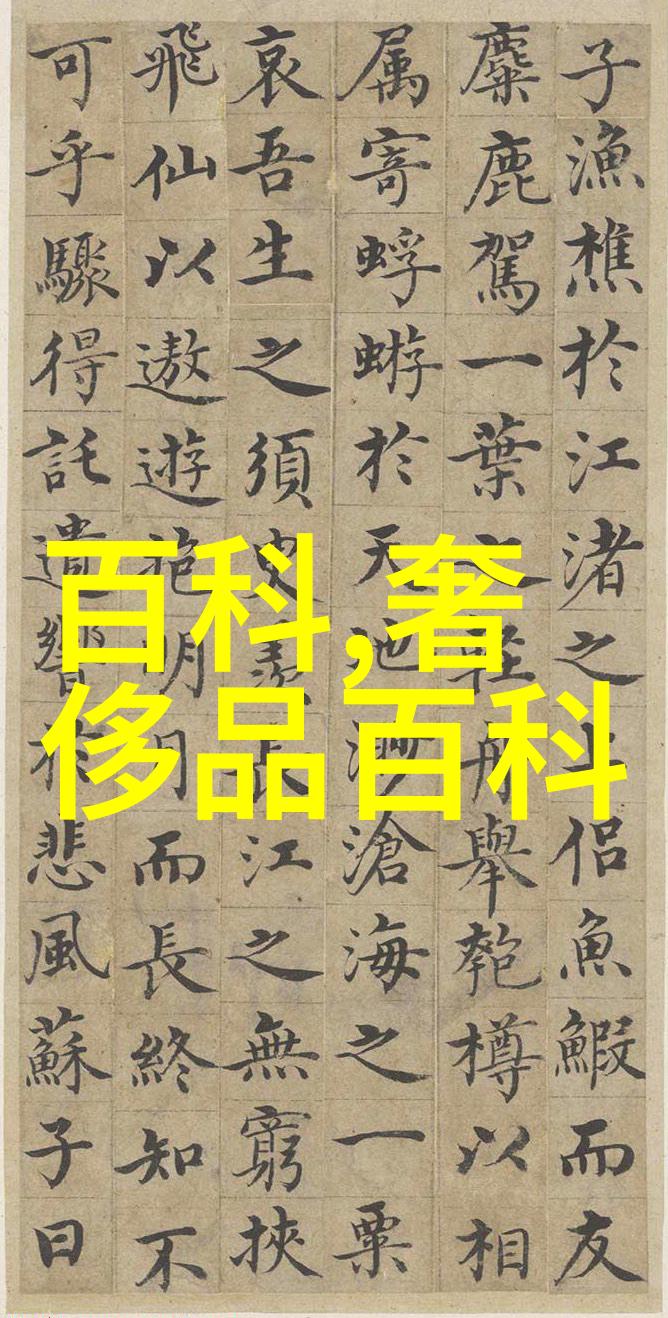 子漁樵於江渚之上侶魚鰕而友
麋鹿駕一葉之輕舟舉匏樽以相
属寄蜉蝣於天地渺滄海之一粟
哀吾生之須臾羨長江之無窮挾
飛仙以遨遊抱明月而長終知不
可乎驟得託遺響於悲風蘇子曰
百科,奢
侈品百科